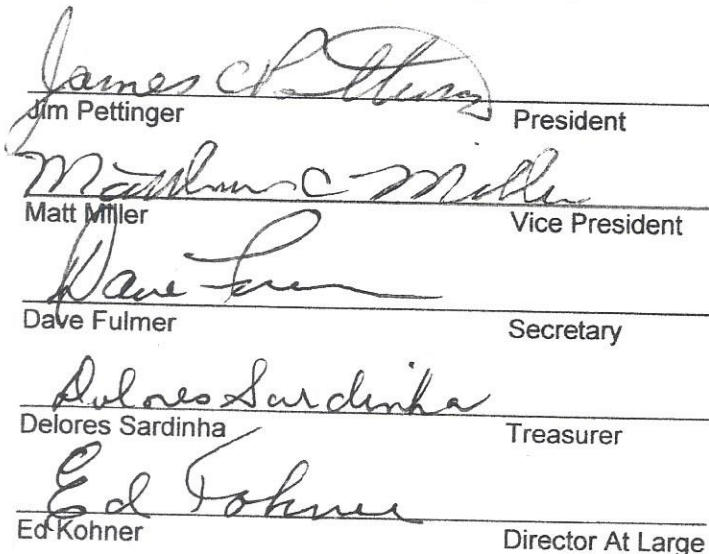 James C Pettinger
Jim Pettinger President
Matthew C Miller
Matt Miller Vice President
Dave
Dave Fulmer Secretary
Dolores Sardinha
Delores Sardinha Treasurer
Ed Kohner
Ed Kohner Director At Large